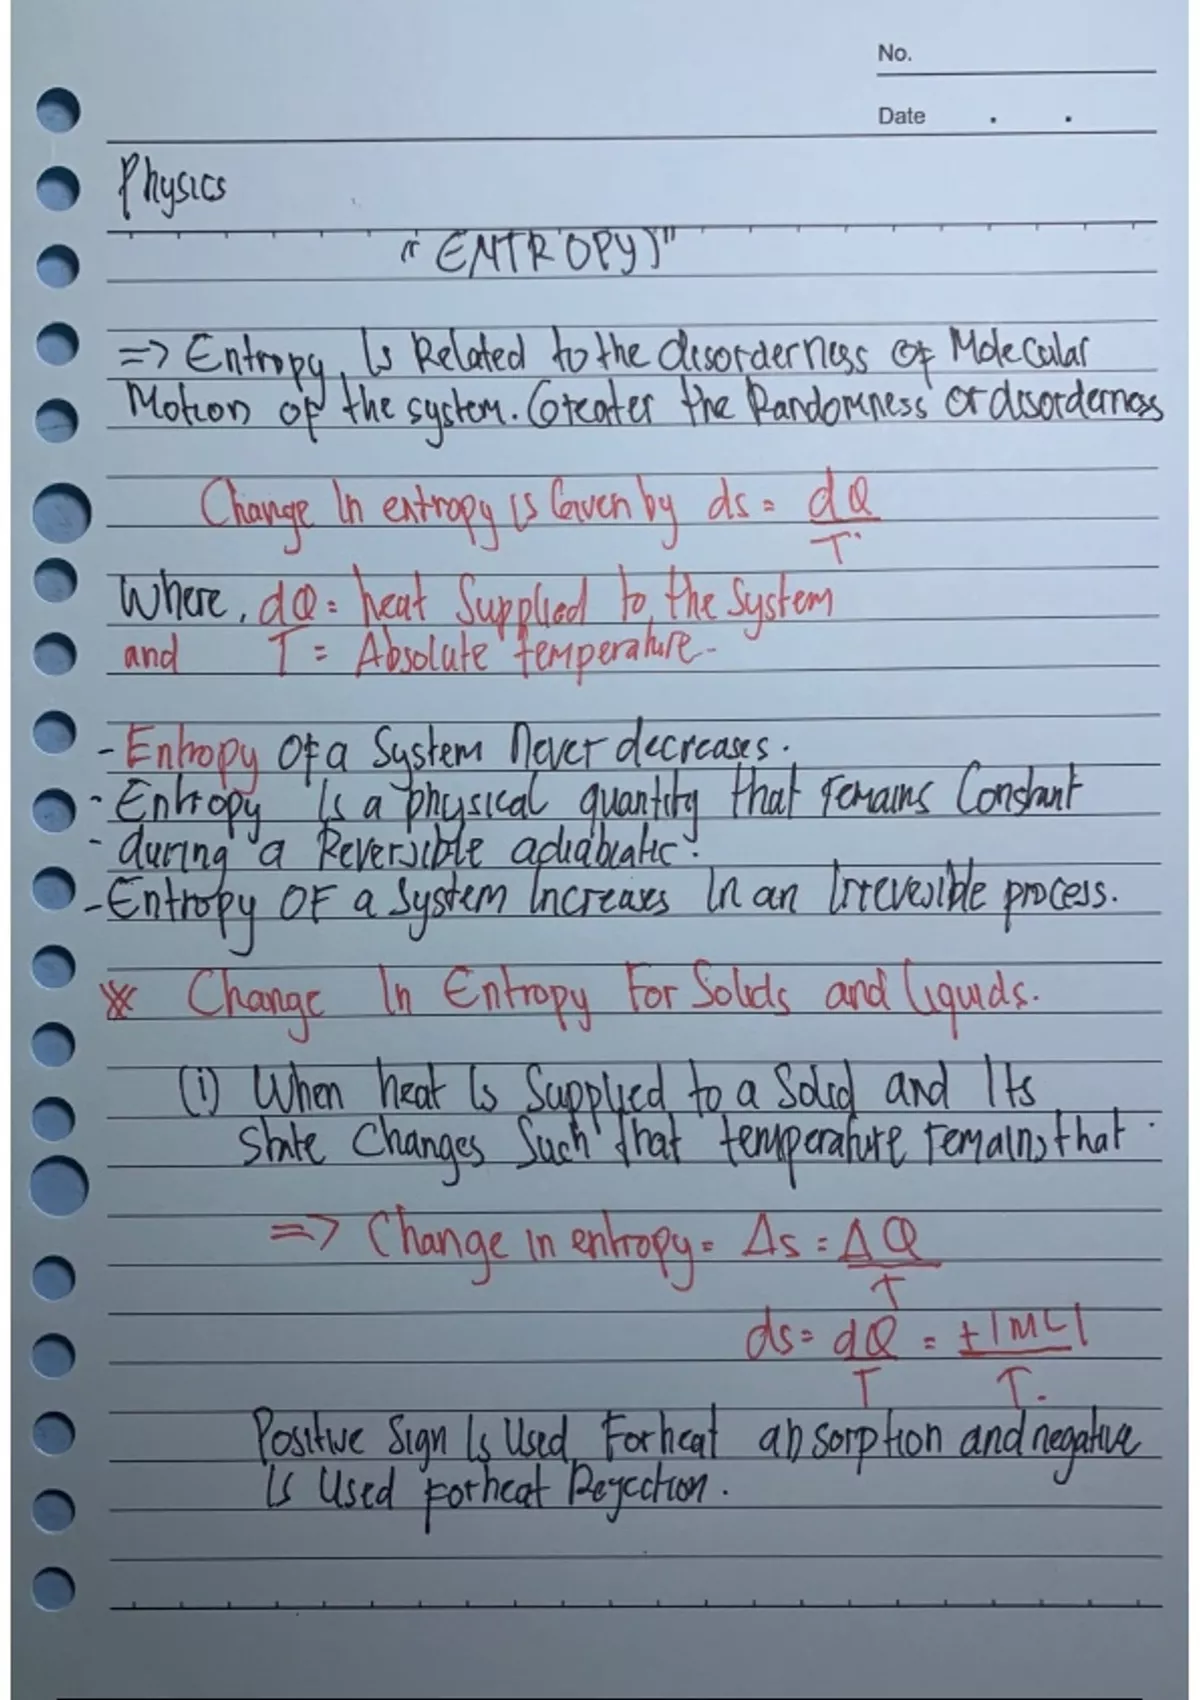 No.
Date
Physics
"ENTROPY)"
=> Entropy, Is Related to the disorderness of Molecular
Motion of the system. Greater the Randomness or disorderness
Change In entropy is Given by ds = dQ/T.
Where, dQ = heat Supplied to the System
and T = Absolute temperature.
- Entropy Of a System Never decreases.
- Entropy Is a physical quantity that remains Constant
- during a Reversible adiabatic.
- Entropy OF a System Increases In an Irreversible process.
※ Change In Entropy For Solids and Liquids.
(i) When heat Is Supplied to a Solid and Its
State Changes Such that temperature remains that
=> Change in entropy = Δs = ΔQ/T
ds = dQ/T = ±|ML|/T.
Positive Sign Is Used For heat absorption and negative
Is Used for heat Rejection.